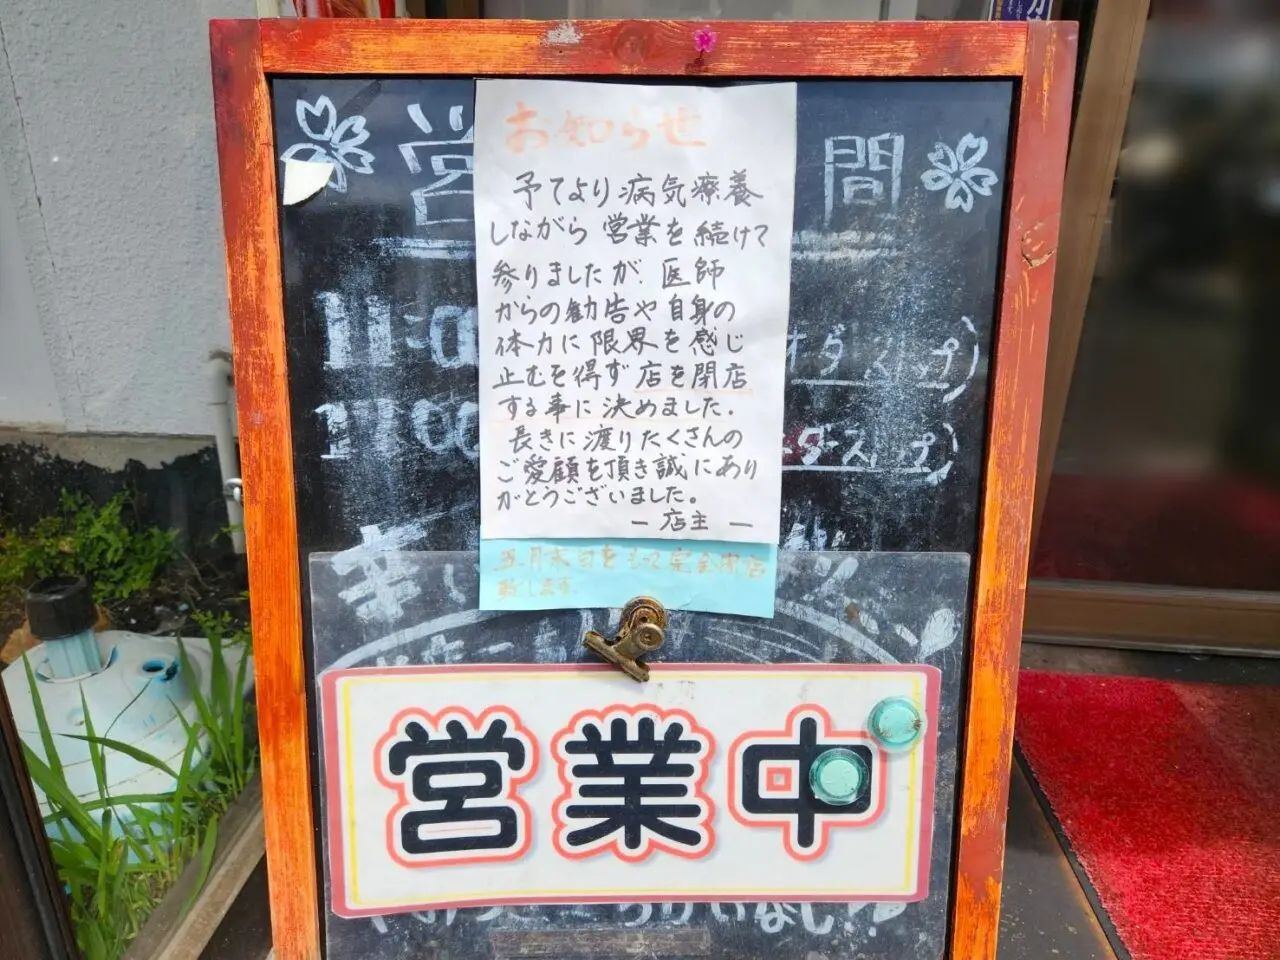 営 問
お知らせ
予てより病気療養
しながら営業を続けて
参りましたが、医師
からの勧告や自身の
体力に限界を感じ
止むを得ず店を閉店
する事に決めました。
長きに渡りたくさんの
ご愛顧を頂き誠にあり
がとうございました。
ー店主ー
五月末日をもって完全閉店
致します。
11:00
オダストップ)
17:00
ダストップ)
営業中